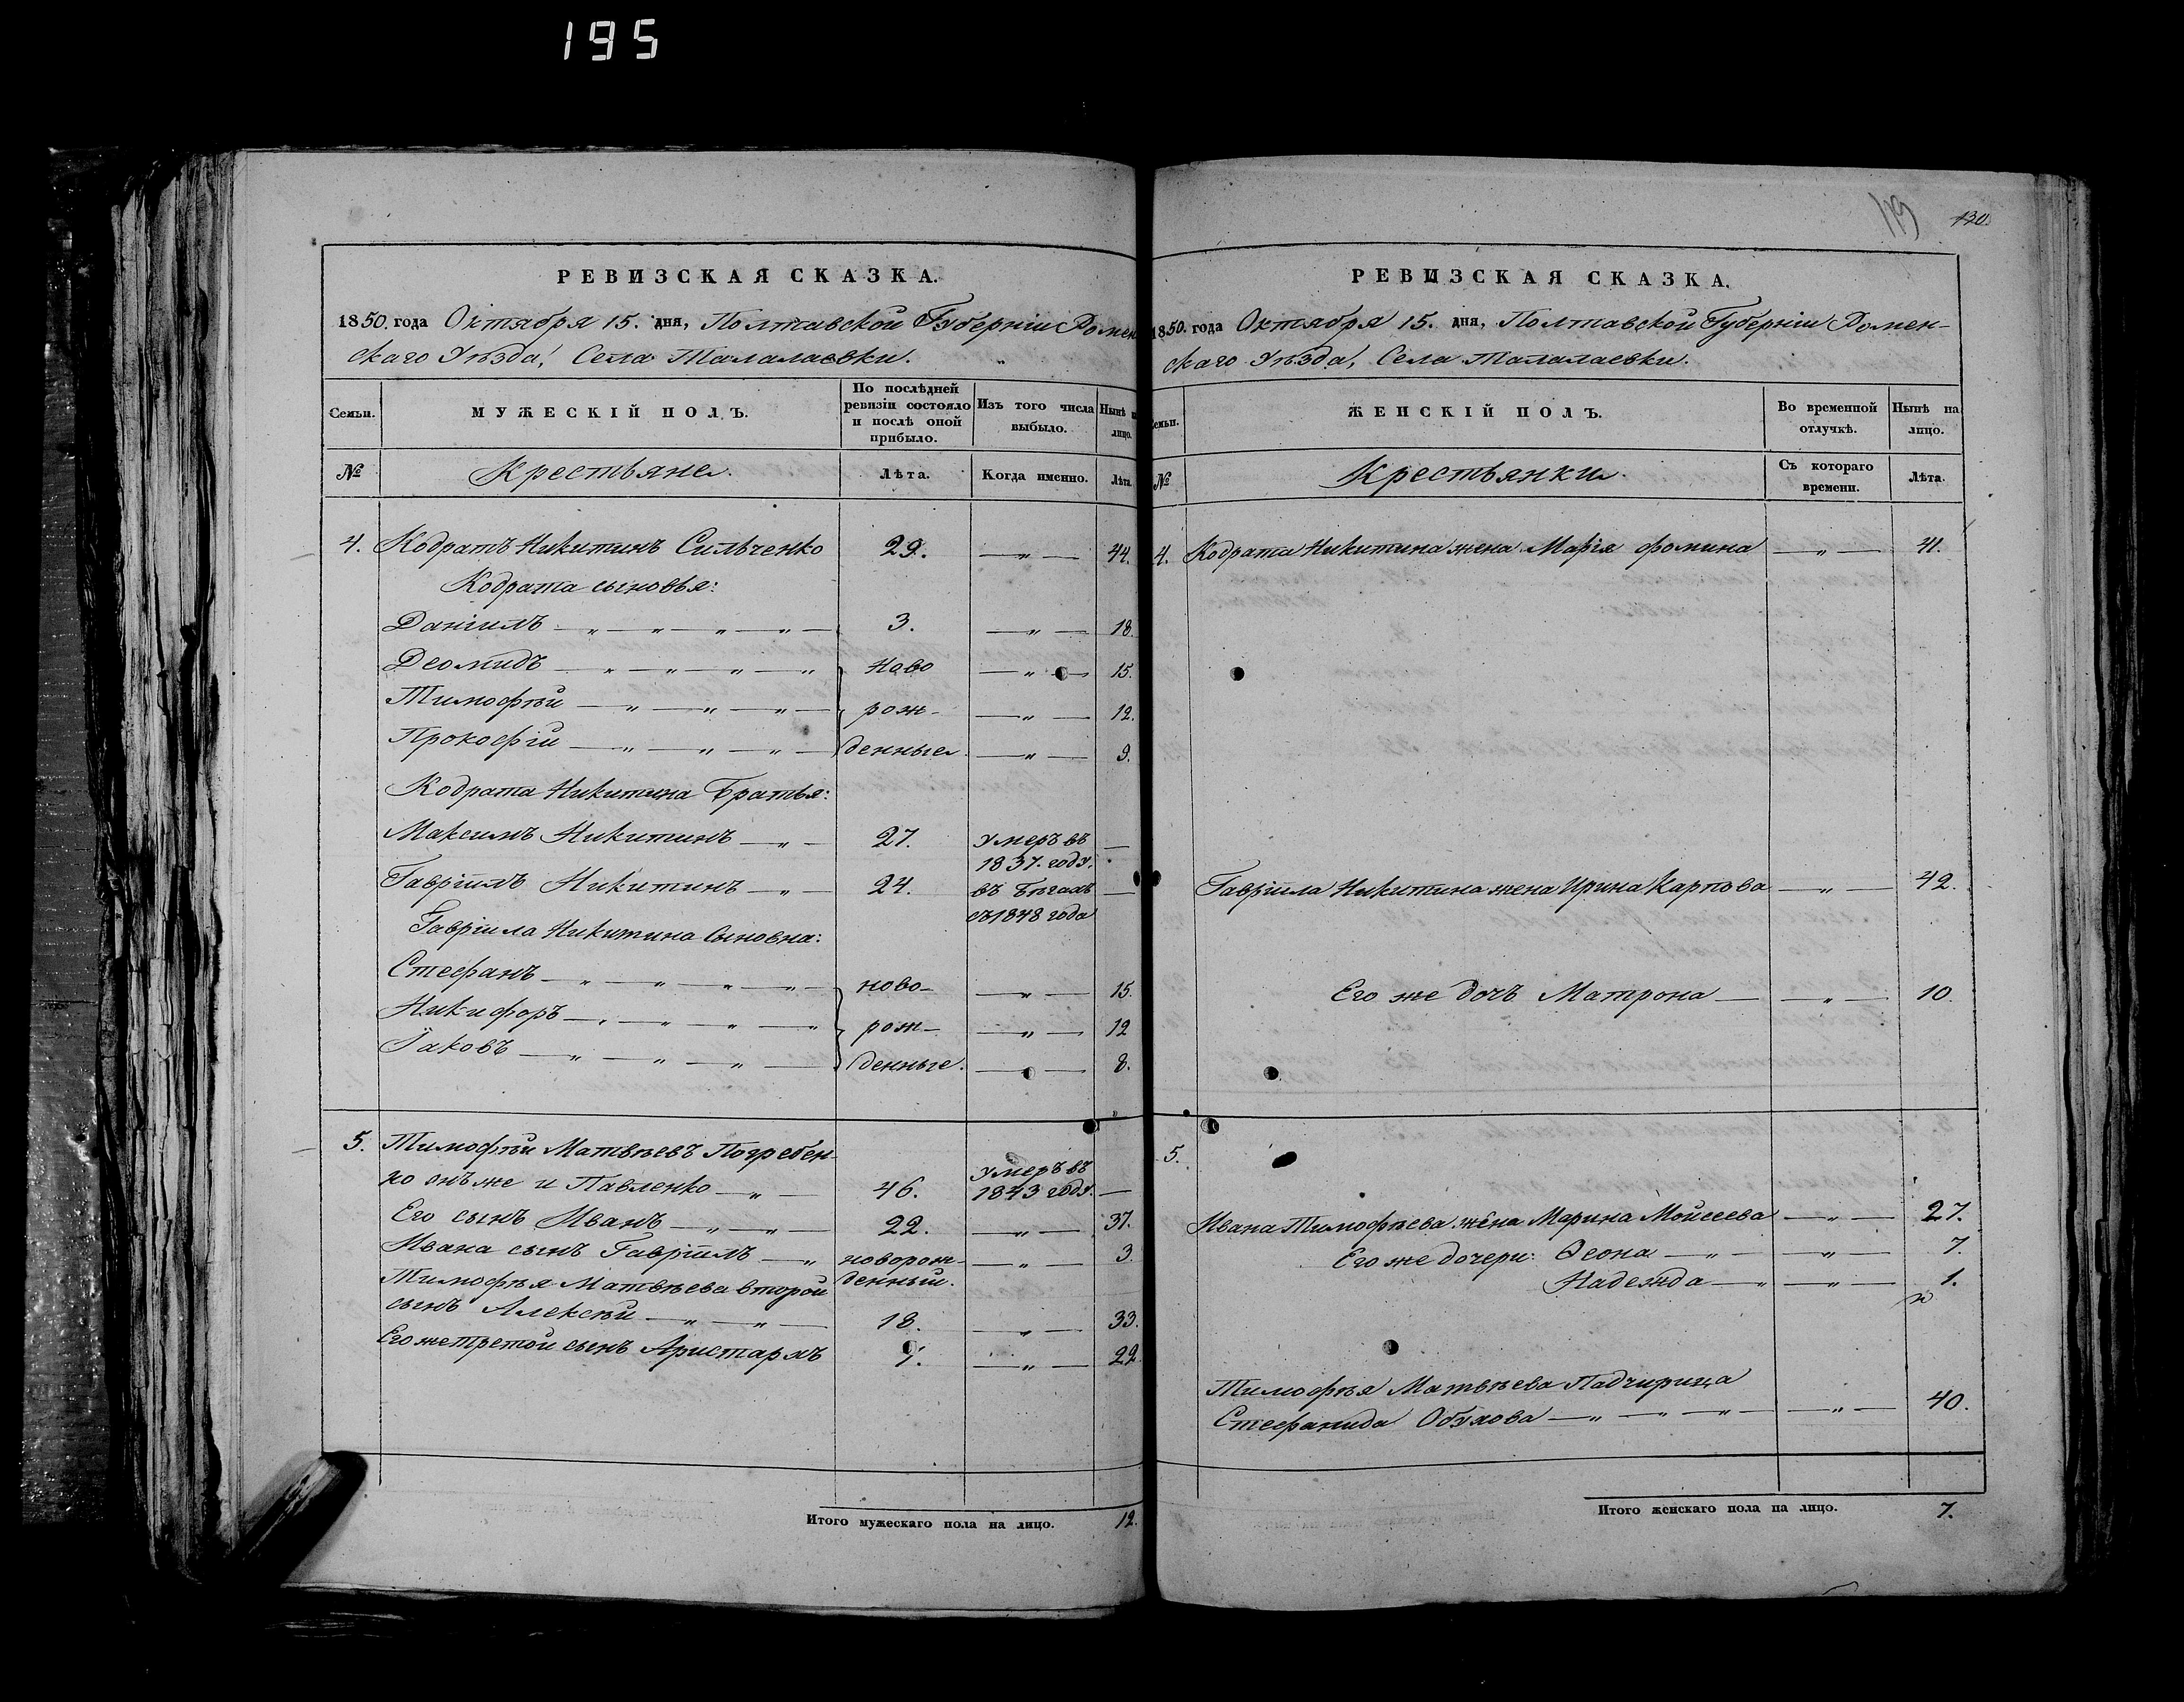 195
РЕВИЗСКАЯ СКАЗКА.
1850. года Октября 15. дня, Полтавской Губерніи Ромен
скаго Уѣзда, Села Талалаевки.
Семьи.
МУЖЕСКІЙ ПОЛЪ.
По послѣдней
ревизіи состояло
и послѣ оной
прибыло.
Изъ того числа
выбыло.
Нынѣ н
лицо.
№
Крестьяне.
Лѣта.
Когда именно.
Лѣта.
4. Кодратъ Никитинъ Сильченко 29. —„— 44.
Кодрата сыновья:
Даніилъ —„—„—„—„— 3. —„— 18.
Деомидъ —„—„—„—„ Ново —„— 15.
Тимофѣй —„—„—„— рож- —„— 12.
Прокофій —„—„—„— денные —„— 9.
Кодрата Никитина Братья:
Максимъ Никитинъ —„— 27. Умеръ въ —
1837. году.
Гавріилъ Никитинъ —„— 24. въ бѣгахъ —
съ 1848 года
Гавріила Никитина Сыновья:
Стефанъ —„—„—„—„— ново- —„— 15.
Никифоръ —„—„—„—„ рож- —„— 12
Іаковъ —„—„—„— денные. —„— 8.
5. Тимофѣй Матвѣевъ Погребен-
ко онъ же и Павленко —„— 46. Умеръ въ
1843 году. —
Его сынъ Иванъ —„—„— 22. —„— 37.
Ивана сынъ Гавріилъ —„ новорож- —„— 3.
денный.
Тимофѣя Матвѣева второй
сынъ Алексѣй —„—„— 18. —„— 33.
Его же третой сынъ Аристархъ 7. —„— 22
Итого мужескаго пола на лицо. 12.
119 130.
РЕВИЗСКАЯ СКАЗКА.
1850. года Октября 15. дня, Полтавской Губерніи Ромен-
скаго Уѣзда, Села Талалаевки.
Семьи.
ЖЕНСКІЙ ПОЛЪ.
Во временной
отлучкѣ.
Нынѣ на
лицо.
№
Крестьянки.
Съ котораго
времени.
Лѣта.
4. Кодрата Никитина жена Марія Фомина —„— 41.
Гавріила Никитина жена Ирина Карпова —„— 42.
Его же дочь Матрона — —„— 10.
5.
Ивана Тимофѣева жена Марина Моисеева —„— 27.
Его же дочери: Ѳеона —„— —„— 7.
Надежда —„ —„— 1.
Тимофѣя Матвѣева Падчирица
Стефанида Обухова —„—„—„— —„— 40.
Итого женскаго пола на лицо. 7.